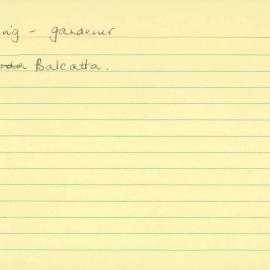 ing - gardener
Balcatta.